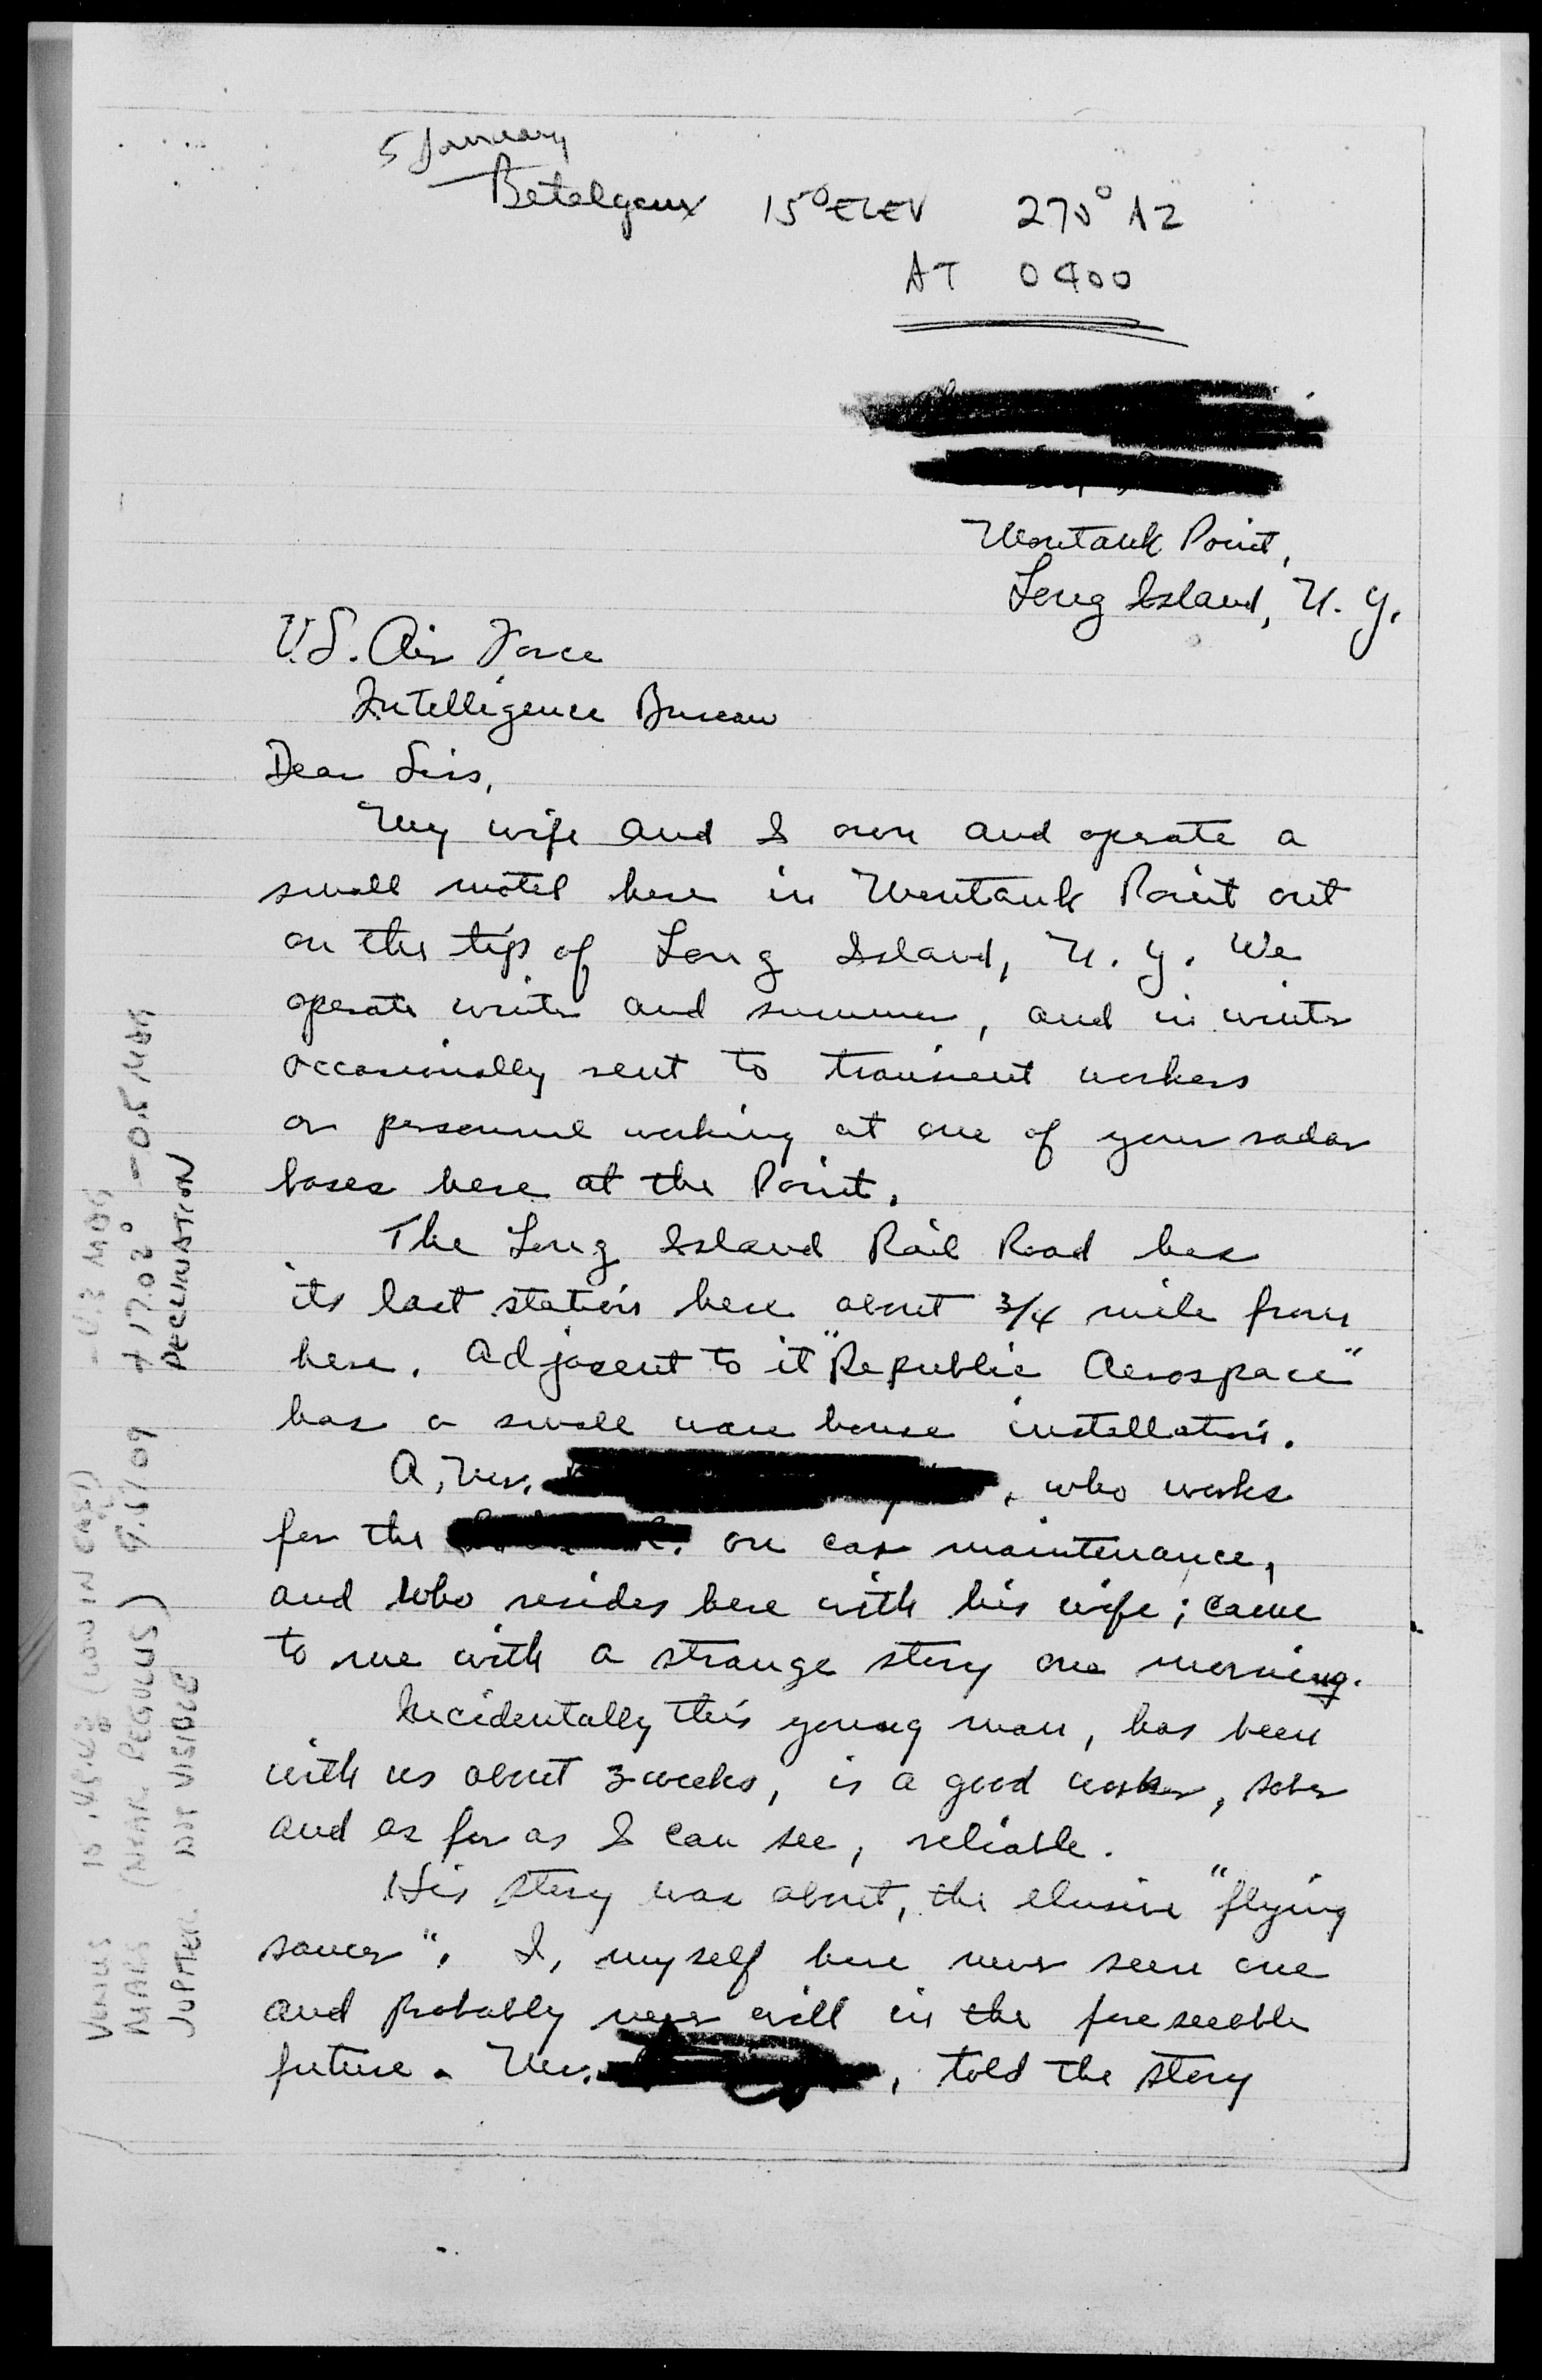 5 January
Betelgeux 15° ELEV 270° AZ
AT 0400
Montauk Point,
Long Island, N. Y.
U.S. Air Force
Intelligence Bureau
Dear Sirs,
My wife and I own and operate a
small motel here in Montauk Point out
on the tip of Long Island, N. Y. We
operate winter and summer, and in winter
occasionally rent to transient workers
or personnel working at one of your radar
bases here at the Point.
The Long Island Rail Road has
its last station here about 3/4 mile from
here. Adjacent to it "Republic Aerospace"
has a small ware house installation.
A, Mr. , who works
for the on car maintenance,
and who resides here with his wife; came
to me with a strange story one morning.
Incidentally this young man, has been
with us about 3 weeks, is a good worker, sober
and as far as I can see, reliable.
His story was about, the elusive "flying
saucer". I, myself have never seen one
and probably never will in the foreseeable
future. Mr. , told the story
VENUS
MARS (NEAR REGULUS) +17.02° -0.5 MAG
JUPITER NOT VISIBLE DECLINATION